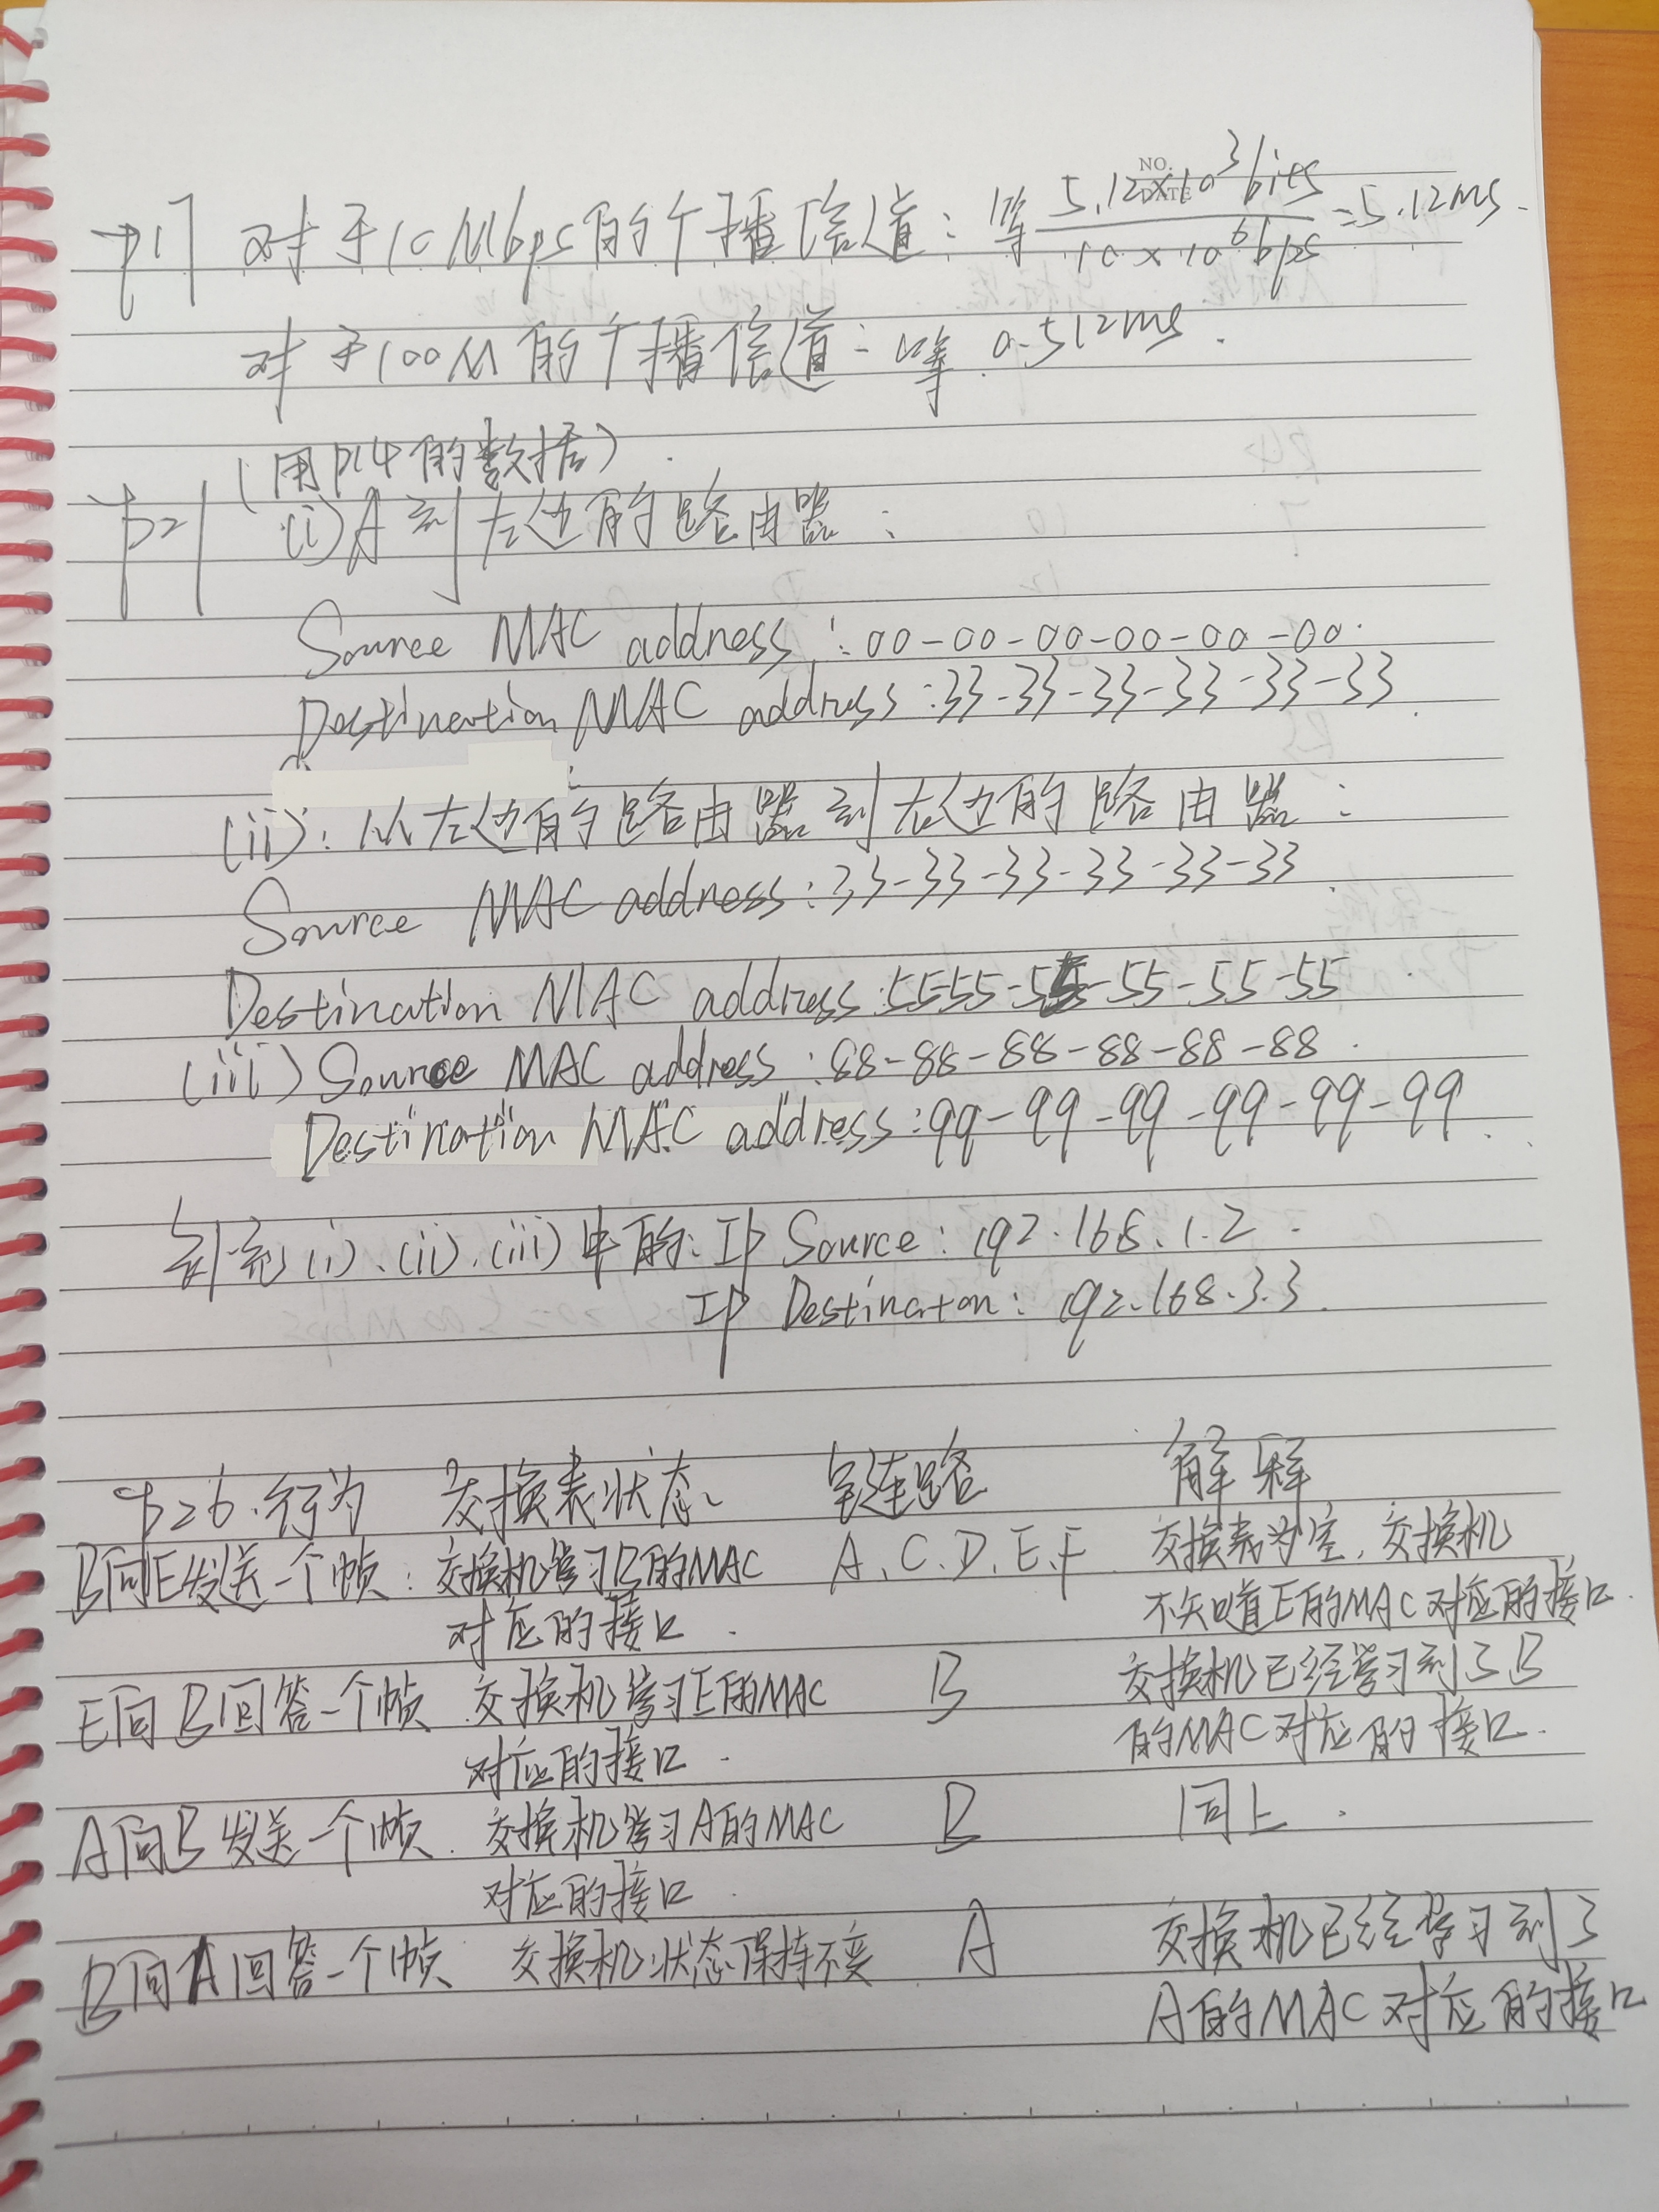 NO.
DATE
p17 对于10Mbps的广播信道：等 5.12×10³bits / 10×10⁶bps =5.12ms.
对于100M的广播信道：等 0.512ms.
(用P14的数据).
p21 (i)A到左边的路由器：
Source MAC address：00-00-00-00-00-00.
Destination MAC address：33-33-33-33-33-33.
(ii)：从左边的路由器到右边的路由器：
Source MAC address：33-33-33-33-33-33.
Destination MAC address：55-55-55-55-55-55.
(iii) Source MAC address：88-88-88-88-88-88.
Destination MAC address：99-99-99-99-99-99.
(i)、(ii)、(iii)中的：IP Source：192.168.1.2.
IP Destinaton：192.168.3.3.
p26.行为 交换表状态 链路 解释
B向E发送一个帧：交换机学习B的MAC A、C、D、E、F 交换表为空，交换机
对应的接口. 不知道E的MAC对应的接口.
E向B回答一个帧 交换机学习E的MAC B 交换机已经学习到了B
对应的接口. 的MAC对应的接口.
A向B发送一个帧. 交换机学习A的MAC B 同上.
对应的接口.
B向A回答一个帧 交换机状态保持不变 A 交换机已经学习到了
A的MAC对应的接口